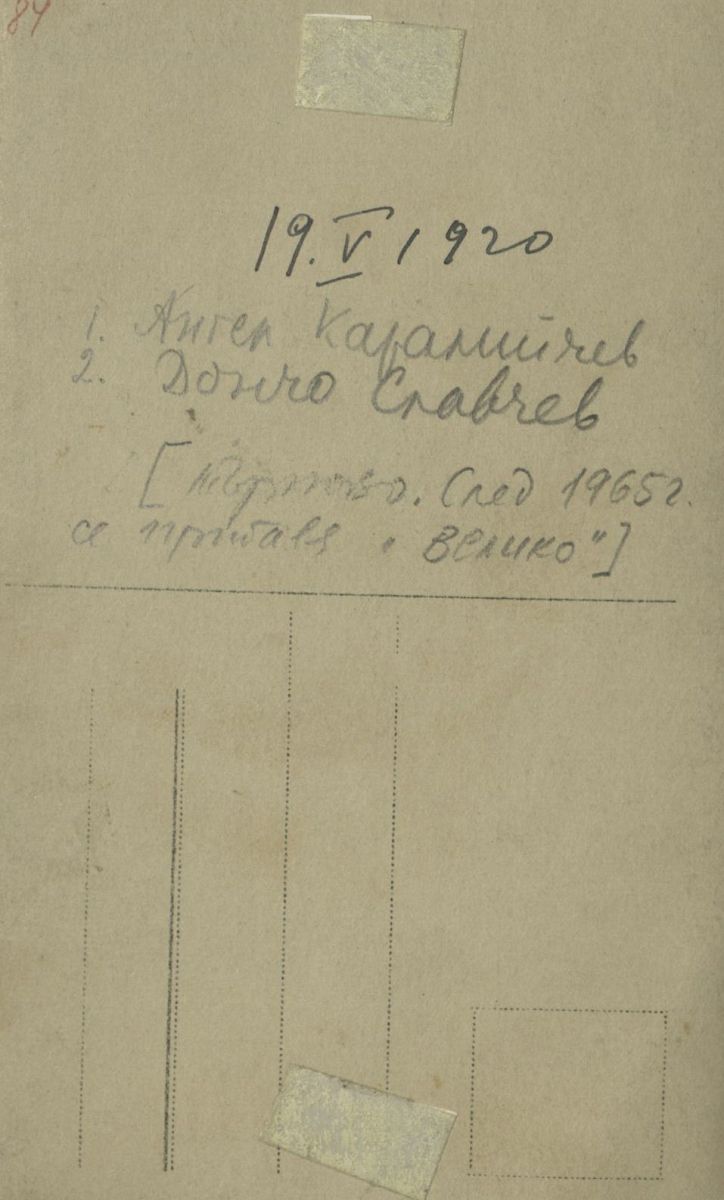 84
19.V 1920
1. Ангел Каралийчев
2. Дончо Славчев
[ Търново. След 1965 г.
се прибавя "Велико"]